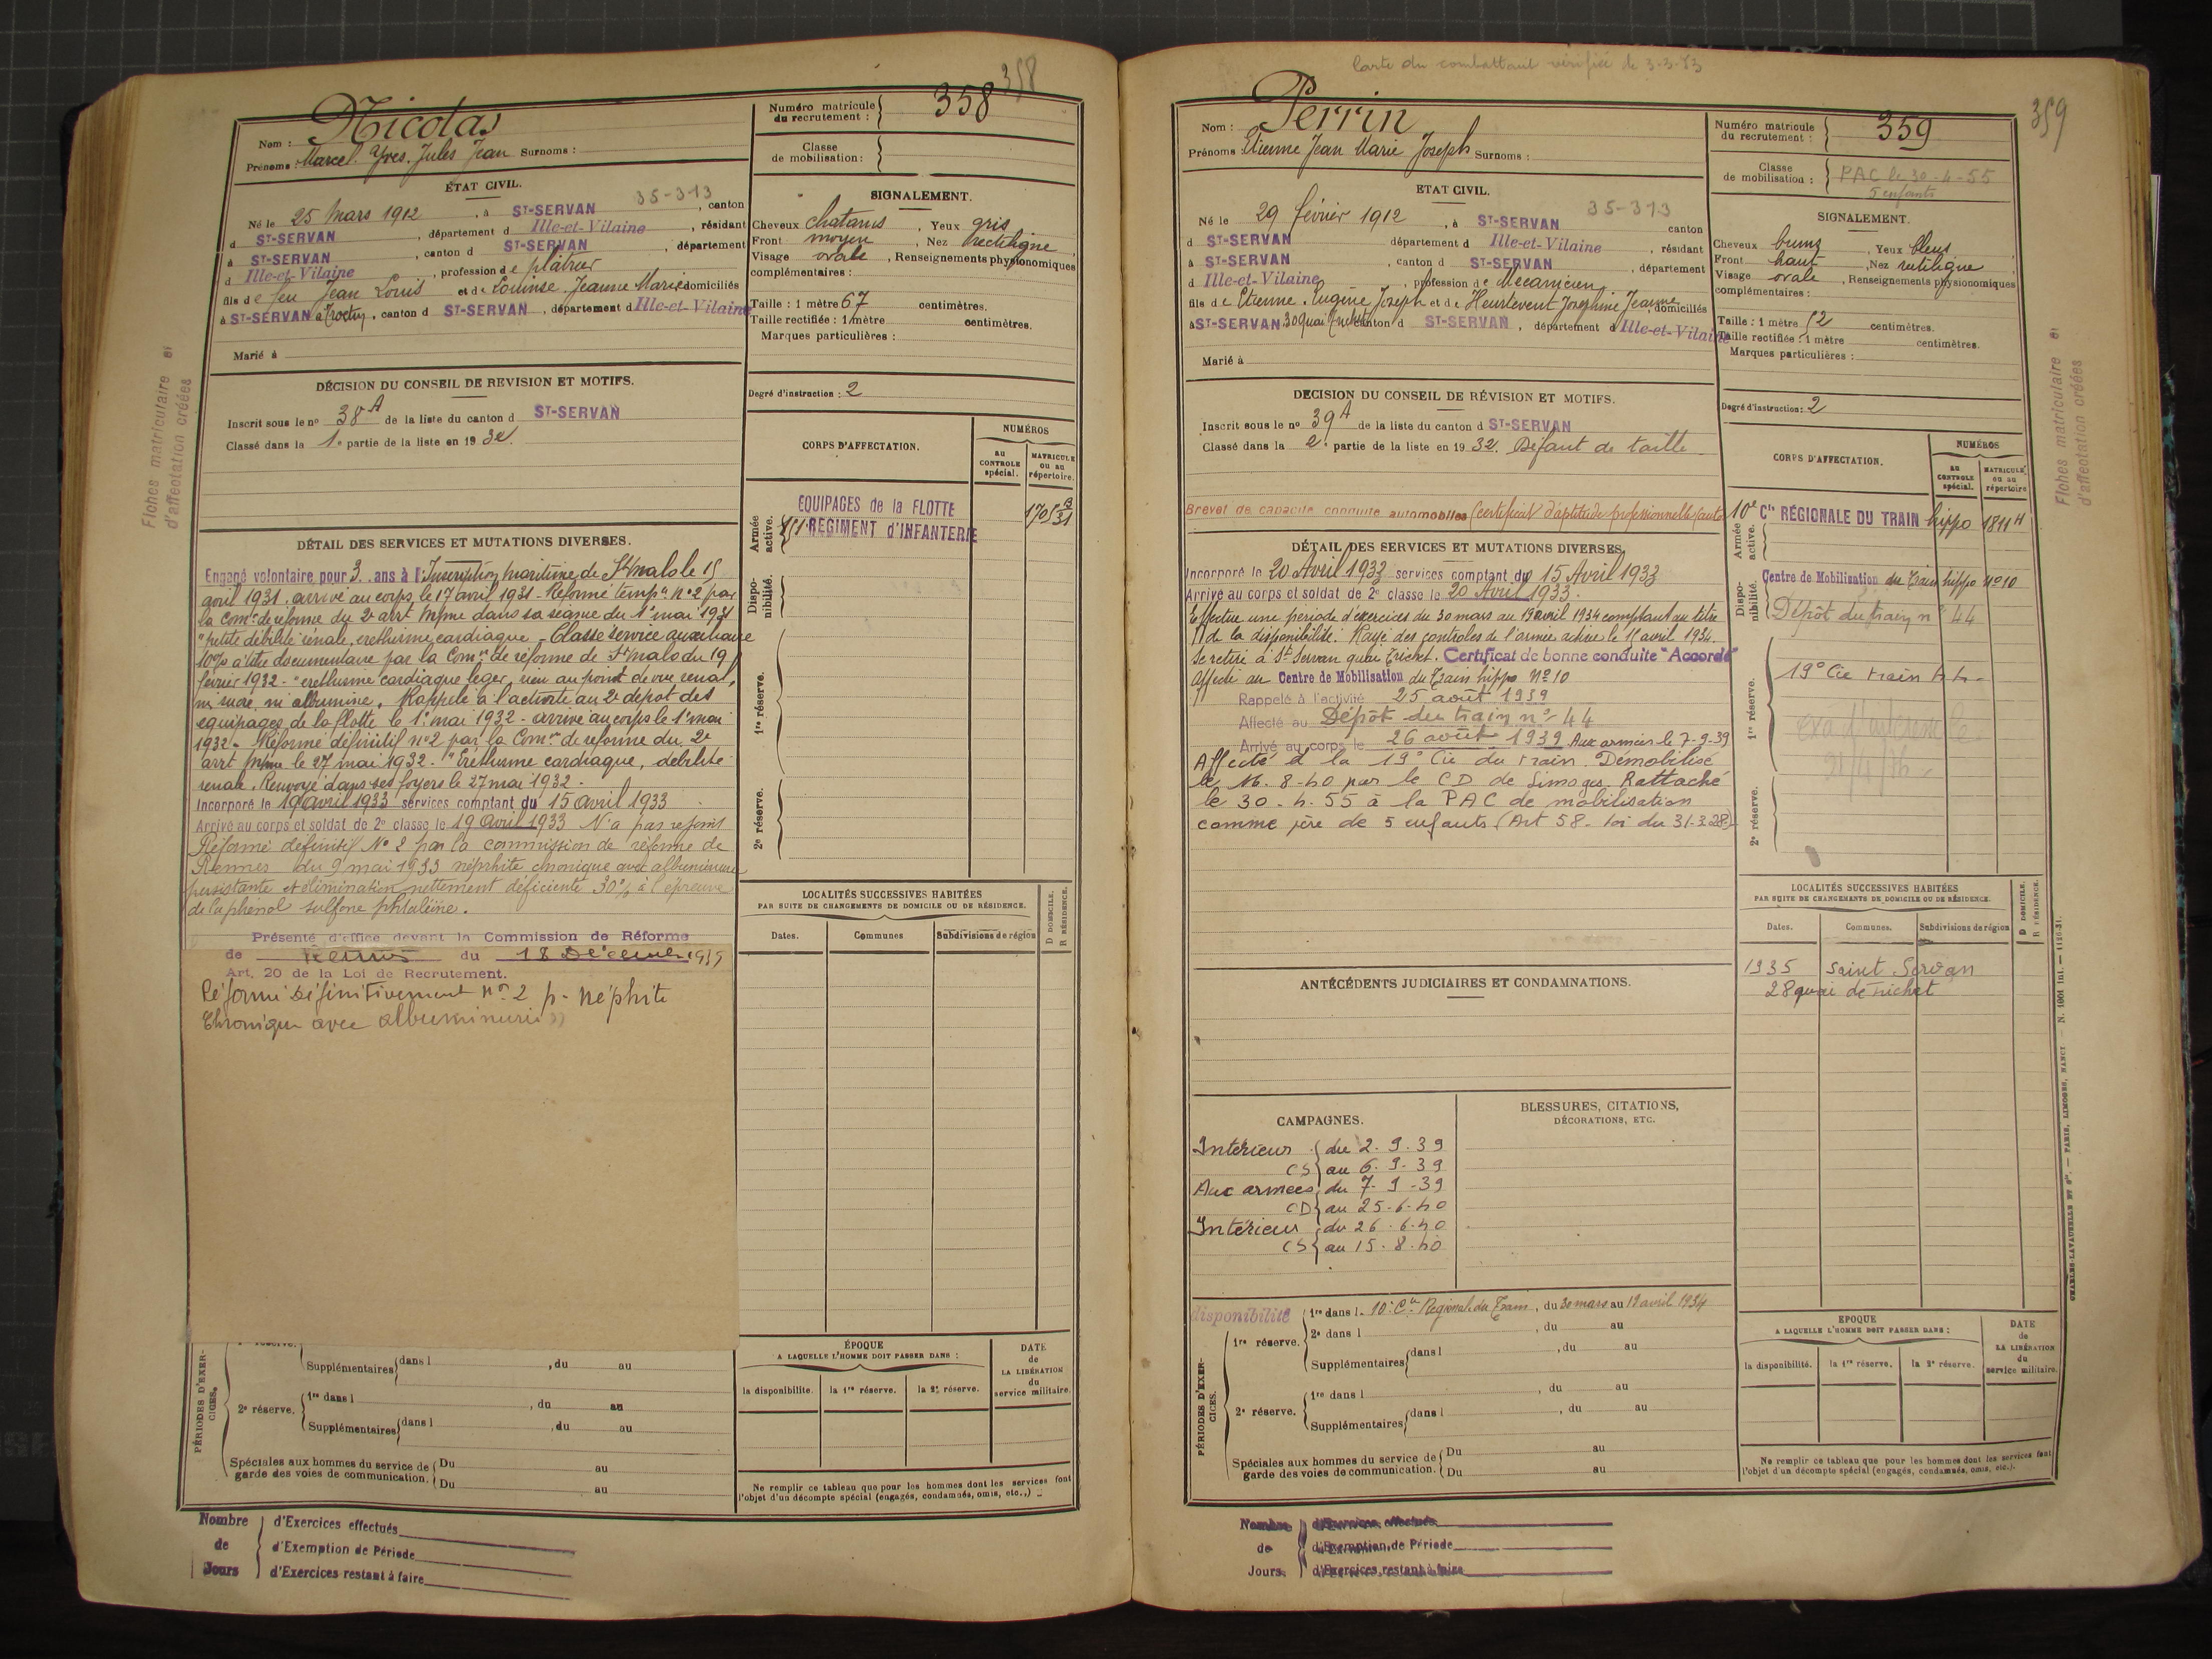 358
Nom : Nicolas
Prénoms : Marcel. Yves. Jules Jean Surnoms :
Numéro matricule du recrutement : 358
Classe de mobilisation :
ÉTAT CIVIL.
35-3-13
Né le 25 mars 1912, à ST-SERVAN, canton
d ST-SERVAN, département d Ille-et-Vilaine, résidant
à ST-SERVAN, canton d ST-SERVAN, département
d Ille-et-Vilaine, profession de plâtrier
fils de feu Jean Louis et de Louinse. Jeanne Marie domiciliés
à ST-SERVAN, canton d ST-SERVAN, département d Ille-et-Vilaine
Marié à
SIGNALEMENT.
Cheveux chatains, Yeux gris
Front moyen, Nez rectiligne
Visage ovale, Renseignements physionomiques
complémentaires :
Taille : 1 mètre 67 centimètres.
Taille rectifiée : 1 mètre centimètres.
Marques particulières :
Degré d'instruction : 2
DÉCISION DU CONSEIL DE REVISION ET MOTIFS.
Inscrit sous le no 38 A de la liste du canton d ST-SERVAN
Classé dans la 1e partie de la liste en 19 32
Fiches matriculaire et
d'affectation créées
CORPS D'AFFECTATION.
NUMÉROS
au CONTROLE spécial.
MATRICULE ou au répertoire.
Armée active.
EQUIPAGES de la FLOTTE
RÉGIMENT d'INFANTERIE
Disponibilité.
1re réserve.
2e réserve.
DÉTAIL DES SERVICES ET MUTATIONS DIVERSES.
Engagé volontaire pour 3 ans à l'Inscription maritime de St Malo le 15
avril 1931. arrivé au corps le 17 avril 1931 - Réformé tempre n°2 par
la Comon de réforme du 2e arrt Mme dans sa séance du 1er mai 1931
"petite débilité rénale, erethisme cardiaque - Classé service auxiliaire
10% à titre documentaire par la Comon de réforme de St Malo du 19
février 1932 - "erethisme cardiaque leger, rien au point de vue rénal,
ni sucre, ni albumine. Rappelé à l'activité au 2e depot des
equipages de la flotte le 1er mai 1932 - arrivé au corps le 1er mai
1932 - Réformé définitif n°2 par la Comon de reforme du 2e
arrt Mme le 27 mai 1932. "Eréthisme cardiaque, débilité
renale. Renvoyé dans ses foyers le 27 mai 1932.
Incorporé le 19 avril 1933 services comptant du 15 avril 1933
Arrivé au corps et soldat de 2e classe le 19 avril 1933 N'a pas rejoint
Réformé définitif N° 2 par la commission de réforme de
Rennes du 9 mai 1933 néphrite chronique avec albuminurie
persistante et élimination nettement déficiente 30% à l'épreuve
de la phénol sulfone phtaléine.
Présenté d'office devant la Commission de Réforme
de Rennes du 18 Décembre 1939
Art. 20 de la Loi de Recrutement.
Réformé Définitivement n° 2 p. néphrite
Chronique avec albuminurie
LOCALITÉS SUCCESSIVES HABITÉES
PAR SUITE DE CHANGEMENTS DE DOMICILE OU DE RÉSIDENCE.
Dates. Communes Subdivisions de région
D DOMICILE. R RÉSIDENCE.
PÉRIODES D'EXERCICES.
Supplémentaires dans l , du au
2e réserve. 1re dans l , du au
Supplémentaires dans l , du au
Spéciales aux hommes du service de Du au
garde des voies de communication. Du au
ÉPOQUE
A LAQUELLE L'HOMME DOIT PASSER DANS :
la disponibilité. la 1re réserve. la 2e réserve.
DATE de LA LIBÉRATION du service militaire.
Ne remplir ce tableau que pour les hommes dont les services font
l'objet d'un décompte spécial (engagés, condamnés, omis, etc.,)
Nombre de Jours
d'Exercices effectués
d'Exemption de Période
d'Exercices restant à faire
Carte du combattant vérifiée le 3-3-83
359
Nom : Perrin
Prénoms Etienne Jean Marie Joseph Surnoms :
Numéro matricule du recrutement : 359
Classe de mobilisation : PAC le 30-4-55
5 enfants
ETAT CIVIL.
35-313
Né le 29 février 1912, à ST-SERVAN canton
d ST-SERVAN département d Ille-et-Vilaine, résidant
à ST-SERVAN, canton d ST-SERVAN, département
d Ille-et-Vilaine, profession de Mécanicien
fils de Etienne. Eugène Joseph et de Heurtevent Joséphine Jeanne, domiciliés
à ST-SERVAN 30 quai Trichet canton d ST-SERVAN, département d Ille-et-Vilaine
Marié à
SIGNALEMENT.
Cheveux bruns, Yeux bleus
Front haut, Nez rectiligne
Visage ovale, Renseignements physionomiques
complémentaires :
Taille : 1 mètre 52 centimètres.
Taille rectifiée : 1 mètre centimètres.
Marques particulières :
Degré d'instruction : 2
DECISION DU CONSEIL DE RÉVISION ET MOTIFS.
Inscrit sous le no 39 A de la liste du canton d ST-SERVAN
Classé dans la 2e partie de la liste en 19 32. Défaut de taille
Brevet de capacité conduite automobiles (certificat d'aptitude professionnelle (auto
Fiches matriculaire et
d'affectation créées
CORPS D'AFFECTATION.
NUMÉROS
au CONTROLE spécial.
MATRICULE ou au répertoire
Armée active.
10e Cie RÉGIONALE DU TRAIN hippo 1811 H
Disponibilité.
Centre de Mobilisation du Train hippo no 10
Dépôt du train n° 44
1re réserve.
19° Cie train
2e réserve.
DÉTAIL DES SERVICES ET MUTATIONS DIVERSES.
Incorporé le 20 Avril 1933 services comptant du 15 Avril 1933
Arrivé au corps et soldat de 2e classe le 20 Avril 1933.
Effectue une période d'exercices du 30 mars au 19 avril 1934 comptant au titre
de la disponibilité. Rayé des contrôles de l'armée active le 15 avril 1934.
Se retire à St Servan quai Trichet. Certificat de bonne conduite "Accordé"
Affecté au Centre de Mobilisation du Train hippo N° 10
Rappelé à l'activité 25 août 1939
Affecté au Dépôt du train n° 44
Arrivé au corps le 26 août 1939 Aux armées le 7-9-39
Affecté à la 19° Cie du train. Démobilisé
le 16-8-40 par le CD de Limoges Rattaché
le 30-4-55 à la PAC de mobilisation
comme père de 5 enfants (Art 58 - loi du 31-3-28)
LOCALITÉS SUCCESSIVES HABITÉES
PAR SUITE DE CHANGEMENTS DE DOMICILE OU DE RÉSIDENCE.
Dates. Communes. Subdivisions de région
D DOMICILE. R RÉSIDENCE.
1935 Saint Servan
28 quai de Trichet
ANTÉCÉDENTS JUDICIAIRES ET CONDAMNATIONS.
CAMPAGNES.
Intérieur du 2-9-39
CS au 6-9-39
Aux armées du 7-9-39
CD au 25-6-40
Intérieur du 26-6-40
CS au 15-8-40
BLESSURES, CITATIONS,
DÉCORATIONS, ETC.
PÉRIODES D'EXERCICES.
disponibilité
1re réserve. 1re dans l. 10e Cie Régionale du Train, du 30 mars au 19 avril 1934
2e dans l , du au
Supplémentaires dans l , du au
2e réserve. 1re dans l , du au
Supplémentaires dans l , du au
Spéciales aux hommes du service de Du au
garde des voies de communication. Du au
EPOQUE
A LAQUELLE L'HOMME DOIT PASSER DANS :
la disponibilité. la 1re réserve. la 2e réserve.
DATE de LA LIBÉRATION du service militaire.
Ne remplir ce tableau que pour les hommes dont les services font
l'objet d'un décompte spécial (engagés, condamnés, omis, etc.).
CHARLES-LAVAUZELLE ET Cie. — PARIS, LIMOGES, NANCY
Nombre de Jours.
d'Exercices effectués
d'Exemption de Période
d'Exercices restant à faire